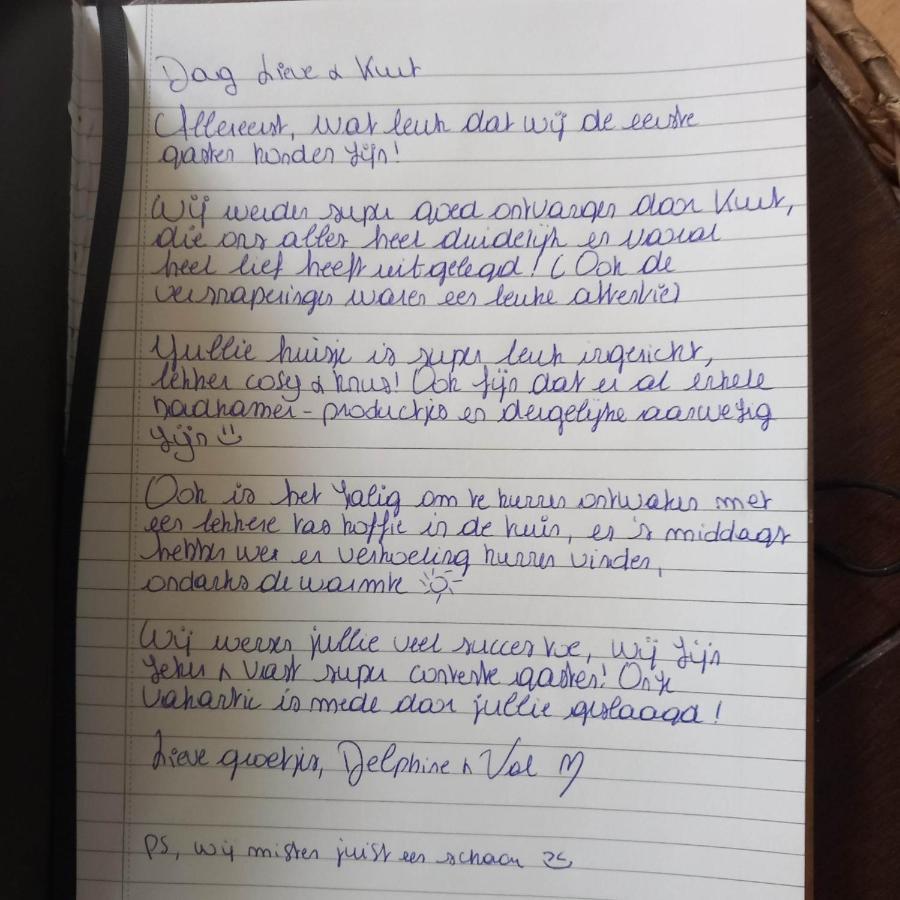 Dag Lieve & Kurt
Allereerst, wat leuk dat wij de eerste
gasten konden zijn!
Wij werden super goed ontvangen door Kurt,
die ons alles heel duidelijk en vooral
heel lief heeft uitgelegd! (Ook de
versnaperingen waren een leuke attentie)
Jullie huisje is super leuk ingericht,
lekker cosy & knus! Ook fijn dat er al enkele
badkamer-productjes en dergelijke aanwezig
zijn ☺
Ook is het zalig om te kunnen ontwaken met
een lekkere tas koffie in de tuin, en 's middags
hebben we er verkoeling kunnen vinden,
ondanks de warmte ☼
Wij wensen jullie veel succes toe, wij zijn
zeker & vast super contente gasten! Onze
vakantie is mede door jullie geslaagd!
Lieve groetjes, Delphine & Val ♡
PS, wij misten juist een schaar ✂